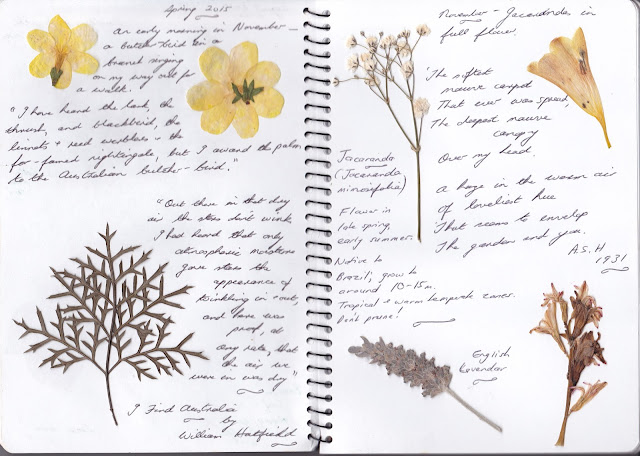 Spring 2015
An early morning in November –
a butcher bird on a
branch singing
on my way out for
a walk.
"I have heard the lark, the
thrush, and blackbird, the
linnets + reed warblers + the
far-famed nightingale, but I award the palm
to the Australian butcher-bird."
"Out there in that dry
air the stars don't wink.
I had heard that only
atmospheric moisture
gave stars the
appearance of
twinkling in + out,
and here was
proof, at
any rate, that
the air we
were in was dry"
I Find Australia
by
William Hatfield
November – Jacarandas in
full flower.
'The softest
mauve carpet
That ever was spread,
The deepest mauve
canopy
Over my head.
A haze in the warm air
of loveliest hue
That seems to envelop
The gardens and you.
A.S.H
1931
Jacaranda
(Jacaranda
mimosifolia)
Flower in
late spring,
early summer.
Native to
Brazil, grow to
around 10-15m.
Tropical + warm temperate zones.
Don't prune!
English
Lavender